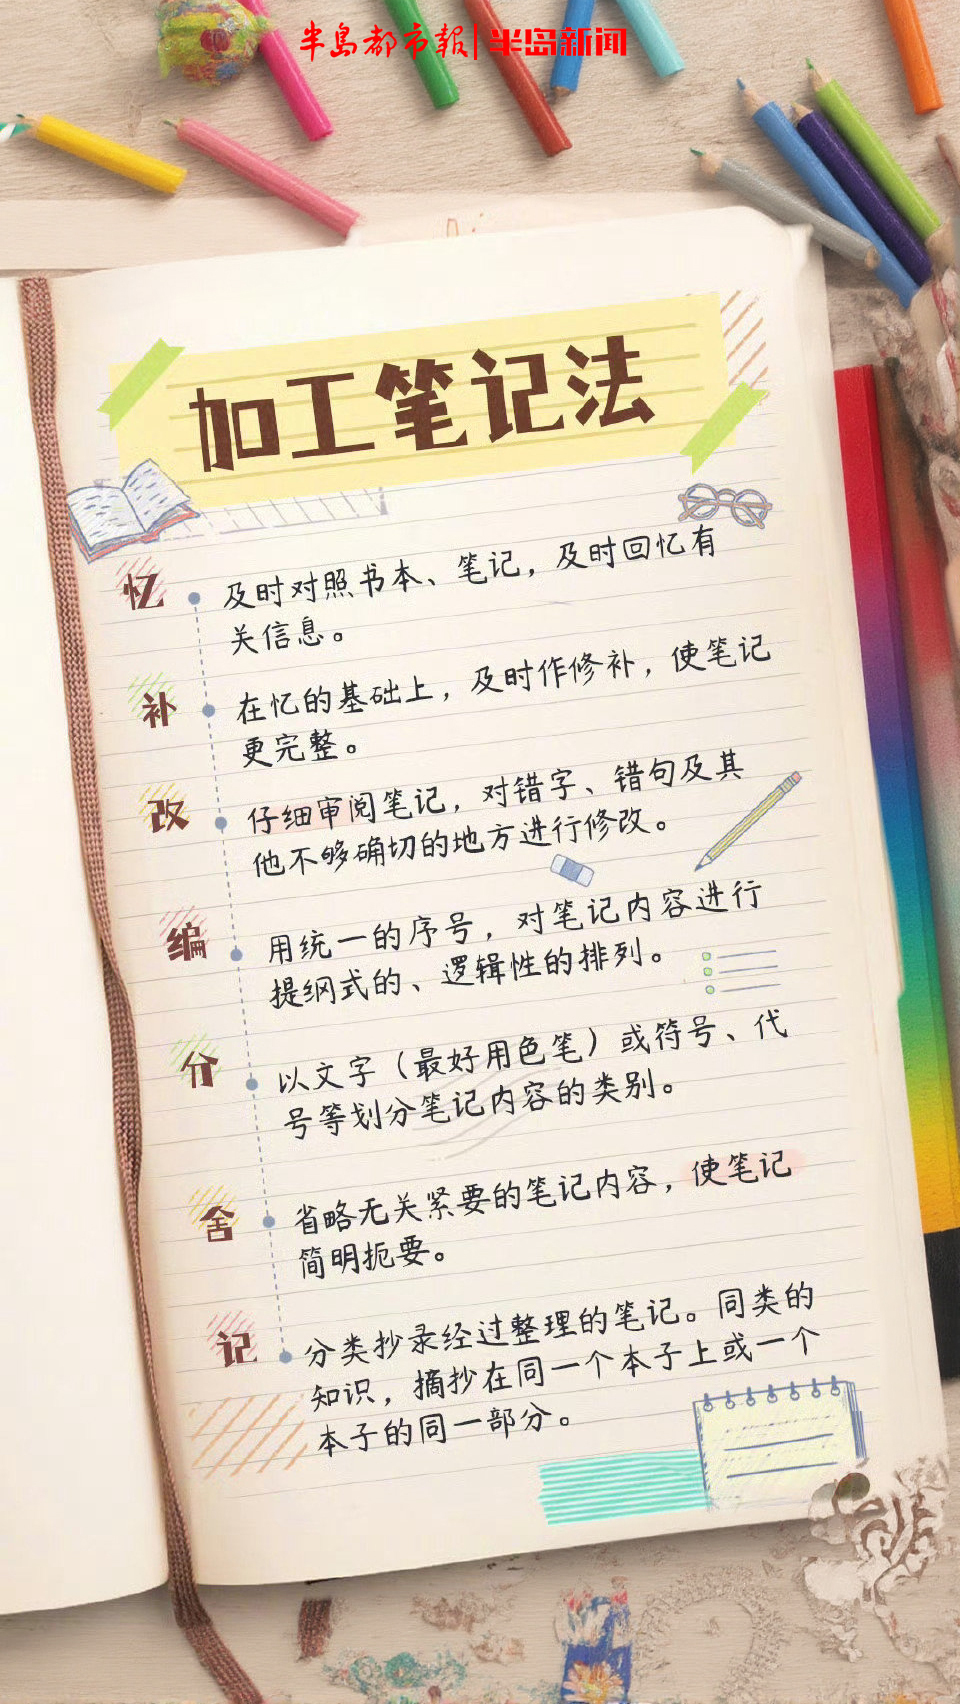 半岛都市报 半岛新闻
加工笔记法
忆
及时对照书本、笔记，及时回忆有
关信息。
补
在忆的基础上，及时作修补，使笔记
更完整。
改
仔细审阅笔记，对错字、错句及其
他不够确切的地方进行修改。
编
用统一的序号，对笔记内容进行
提纲式的、逻辑性的排列。
分
以文字（最好用色笔）或符号、代
号等划分笔记内容的类别。
舍
省略无关紧要的笔记内容，使笔记
简明扼要。
记
分类抄录经过整理的笔记。同类的
知识，摘抄在同一个本子上或一个
本子的同一部分。